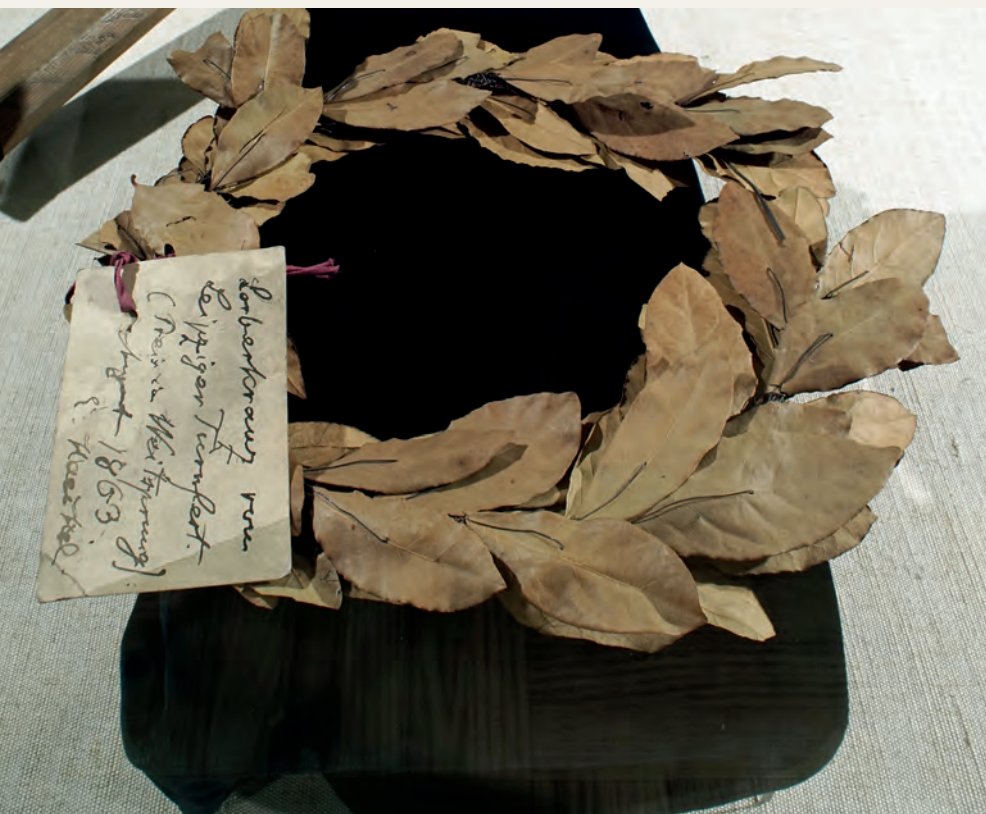 Lorberkranz vom
Leipziger Turnfest.
(Preis im Weitsprung)
August 1863.
E. Haeckel